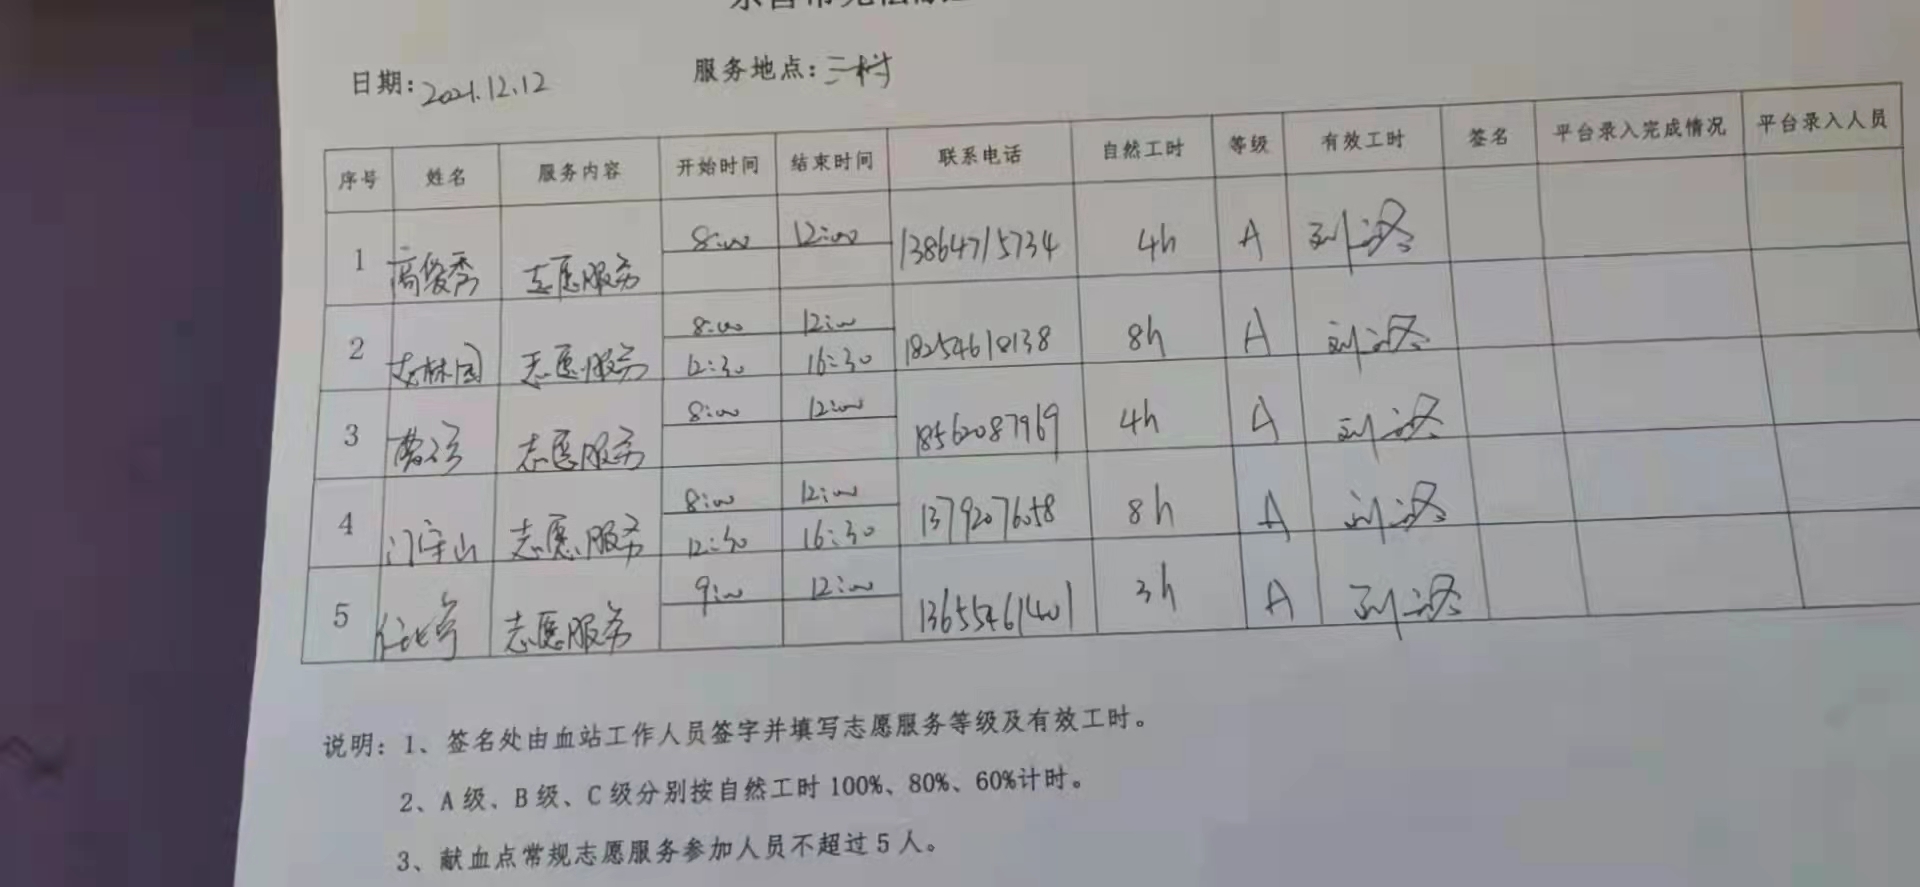 日期: 2021.12.12 服务地点: 三村
序号 姓名 服务内容 开始时间 结束时间 联系电话 自然工时 等级 有效工时 签名 平台录入完成情况 平台录入人员
1 高俊秀 志愿服务 8:00 12:00 13864715734 4h A
2 志愿服务 8:00 12:00 18254618138 8h A
12:30 16:30
3 志愿服务 8:00 12:00 18562087969 4h A
4 门宇山 志愿服务 8:00 12:00 13792076058 8h A
12:30 16:30
5 志愿服务 9:00 12:00 13655461401 3h A
说明: 1、签名处由血站工作人员签字并填写志愿服务等级及有效工时。
2、A 级、B 级、C 级分别按自然工时 100%、80%、60%计时。
3、献血点常规志愿服务参加人员不超过 5 人。